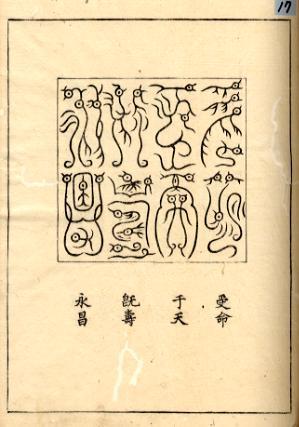 17
受命
于天
旣壽
永昌